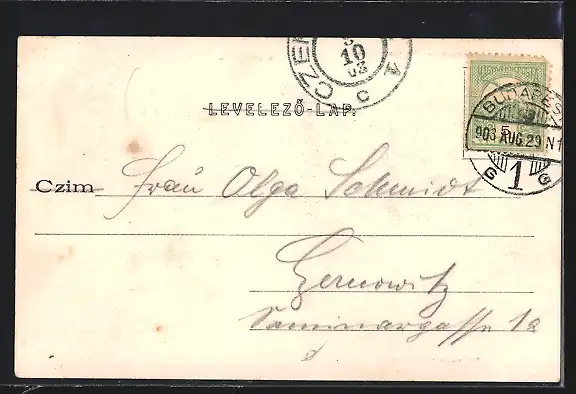 CZE
10
03
A
C
LEVELEZŐ-LAP.
BUDAPEST
903 AUG.29 N1
G 1 G
5
Czim Frau Olga Schmidt
Czernowitz
Seminargasse 1a